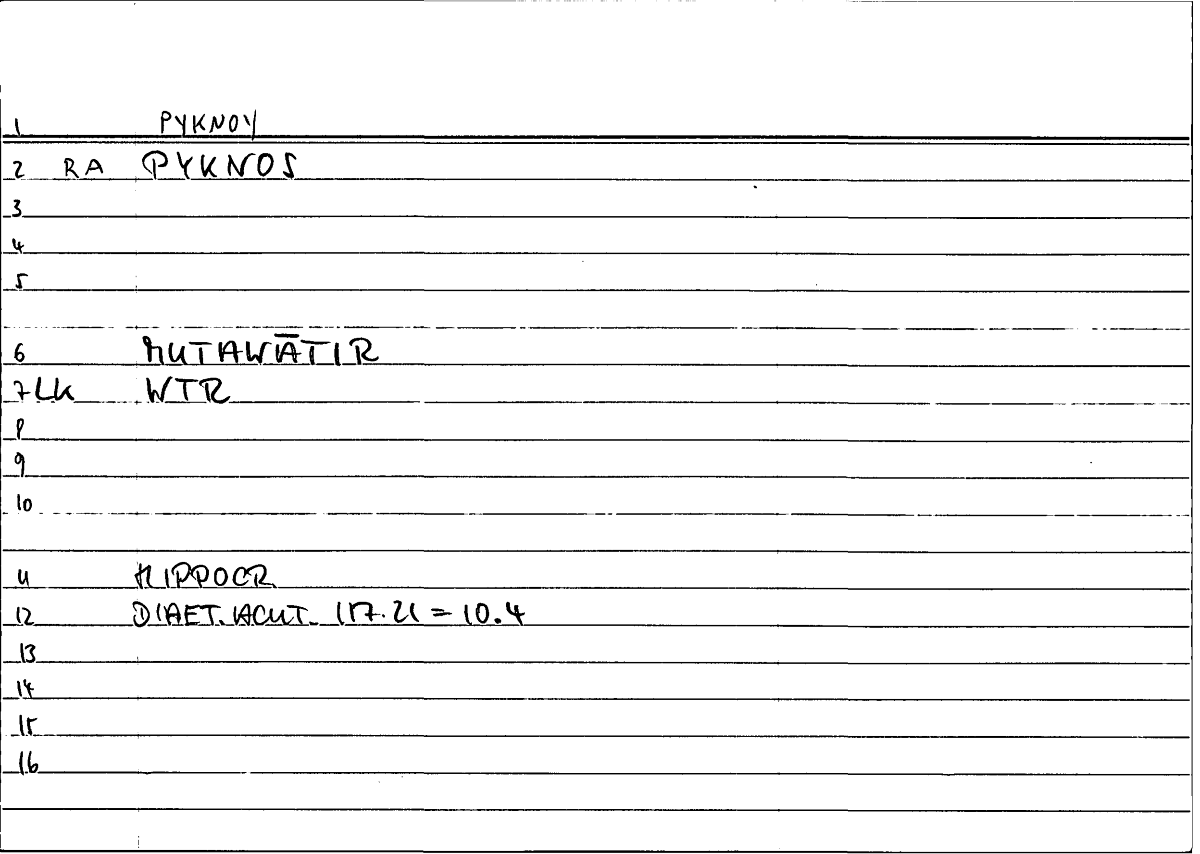 1 PYKNOY
2 RA PYKNOS
3
4
5
6 MUTAWĀTIR
7 LK WTR
8
9
10
11 HIPPOCR
12 DIAET. ACUT. 117.21 = 10.4
13
14
15
16